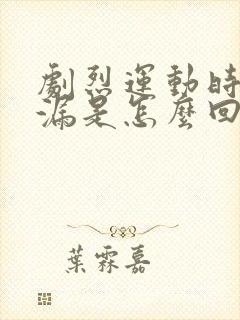 劇烈運動時
漏是怎麼回
葉霖嘉